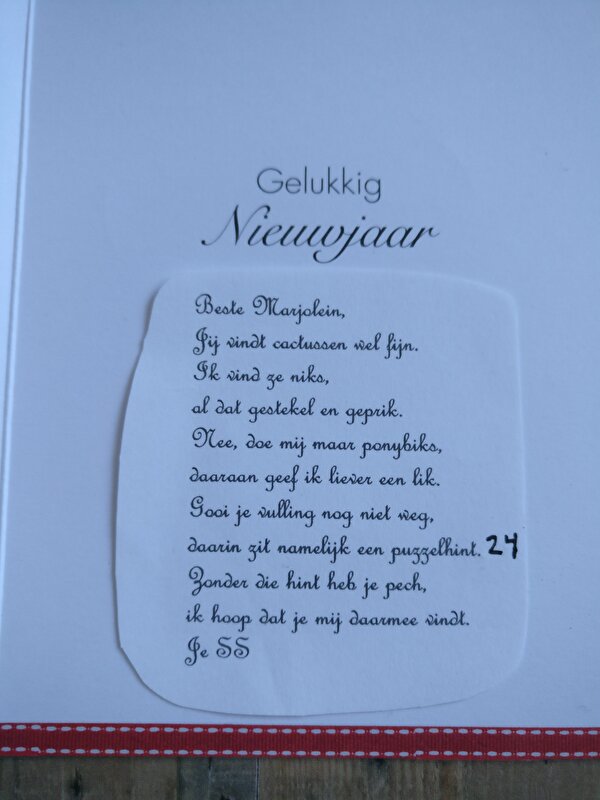 Gelukkig
Nieuwjaar
Beste Marjolein,
Jij vindt cactussen wel fijn.
Ik vind ze niks,
al dat gestekel en geprik.
Nee, doe mij maar ponybiks,
daaraan geef ik liever een lik.
Gooi je vulling nog niet weg,
daarin zit namelijk een puzzelhint. 24
Zonder die hint heb je pech,
ik hoop dat je mij daarmee vindt.
Je SS